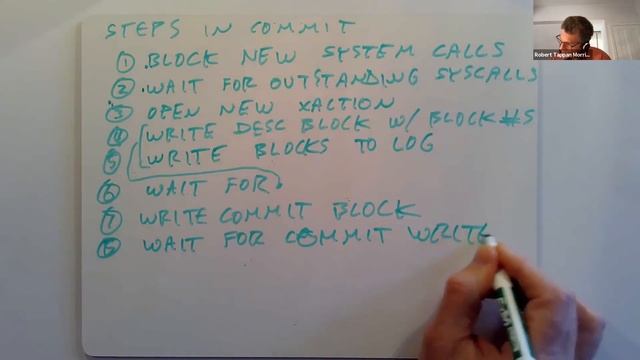 STEPS IN COMMIT
① BLOCK NEW SYSTEM CALLS
② WAIT FOR OUTSTANDING SYSCALLS
③ OPEN NEW XACTION
④ WRITE DESC BLOCK W/ BLOCK #S
⑤ WRITE BLOCKS TO LOG
⑥ WAIT FOR
⑦ WRITE COMMIT BLOCK
⑧ WAIT FOR COMMIT WRITE
Robert Tappan Morri...